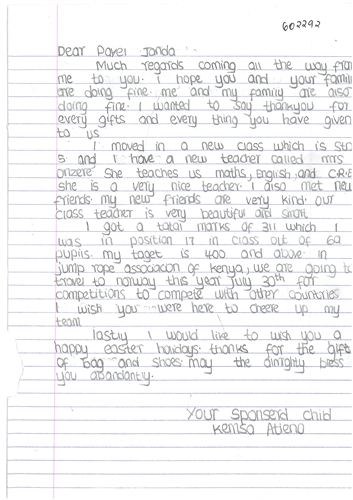 602292
Dear Pavel Janda
Much regards coming all the way from
me to you. I hope you and your family
are doing fine. me and my family are also
doing fine. I wanted to say thankyou for
every gifts and every thing you have given
to us
I moved in a new class which is STD
5 and I have a new teacher called mrs
onzere. She teaches us maths, English, and C.R.E
she is a very nice teacher. I also met new
friends. my new friends are very kind. our
class teacher is very beautiful and smart.
I got a total marks of 311 which I
was in position 17 in class out of 69
pupils. my taget is 400 and above. in
jump rope association of kenya, we are going to
travel to norway this year July 30th for
competitions to compete with other countries
I wish you were here to cheere up my
team
lastly I would like to wish you a
happy easter holidays. thanks for the gift
of bag and shoes. may the almighty bless
you abandantly.
Your sponserd child
Kemsa Atieno